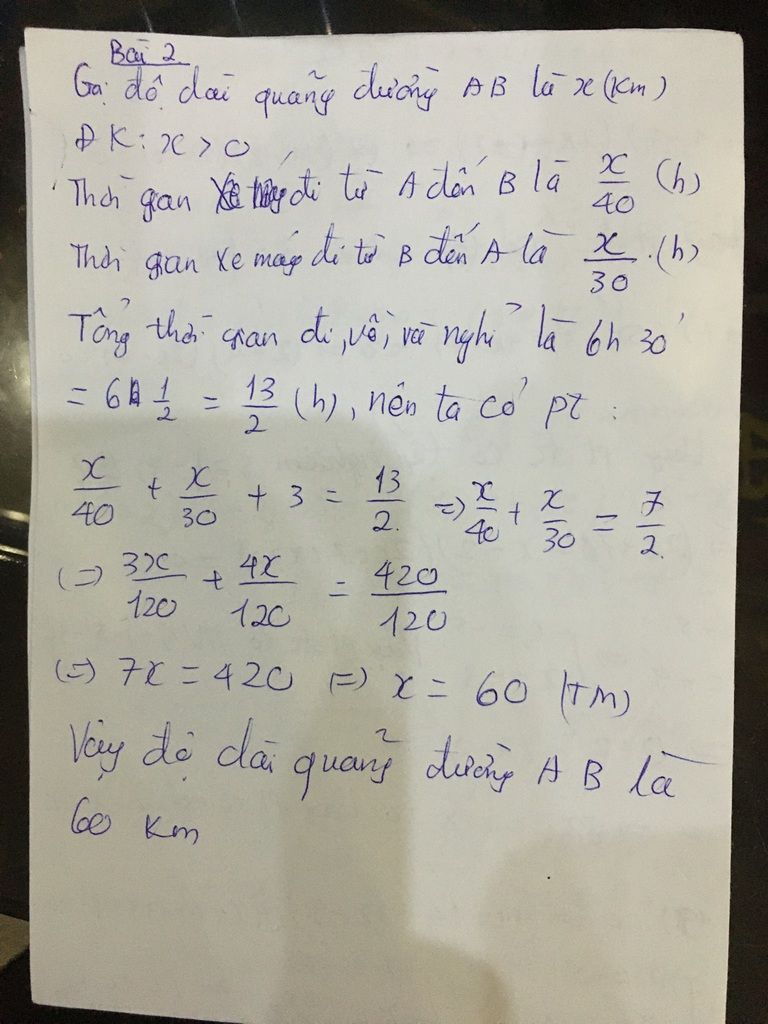 Bài 2
Gọi độ dài quãng đường AB là x (Km)
ĐK: x > 0
Thời gian đi từ A đến B là x/40 (h)
Thời gian xe máy đi từ B đến A là x/30 . (h)
Tổng thời gian đi, về, và nghỉ là 6h 30'
= 6 1/2 = 13/2 (h), nên ta có pt :
x/40 + x/30 + 3 = 13/2 => x/40 + x/30 = 7/2
(=) 3x/120 + 4x/120 = 420/120
(=) 7x = 420 (=) x = 60 (TM)
Vậy độ dài quãng đường AB là
60 Km